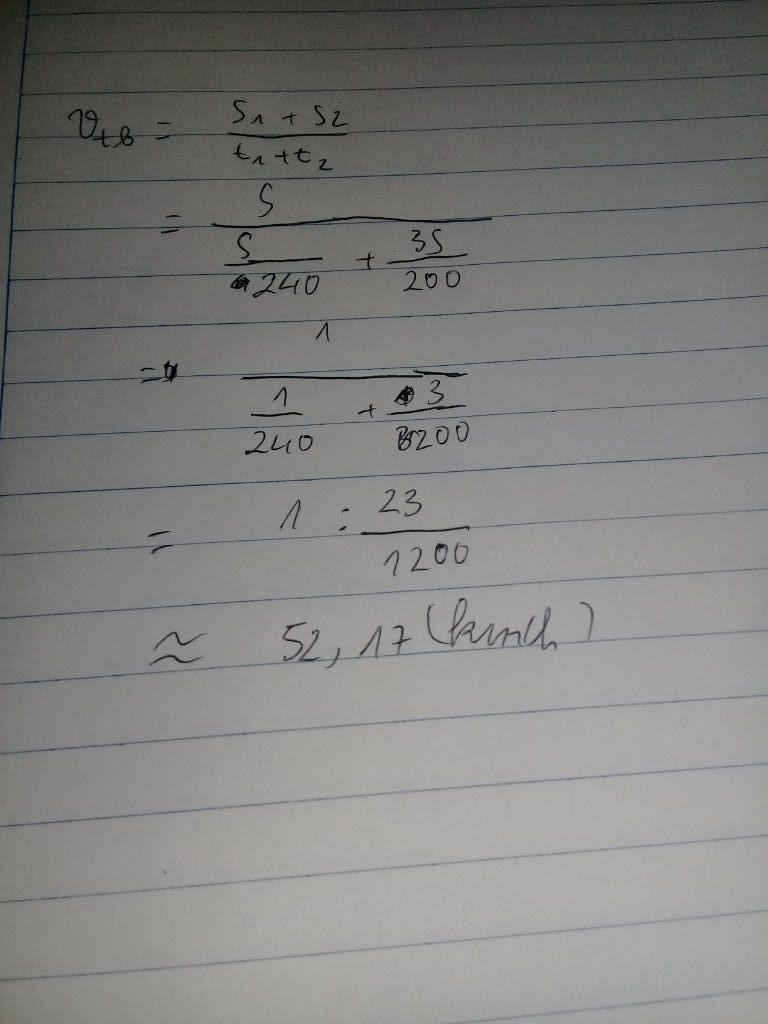 Vtb = S1 + S2 / t1 + t2
= S / S/240 + 3S/200
= 1 / 1/240 + 3/200
= 1 : 23/1200
≈ 52,17 (km/h)